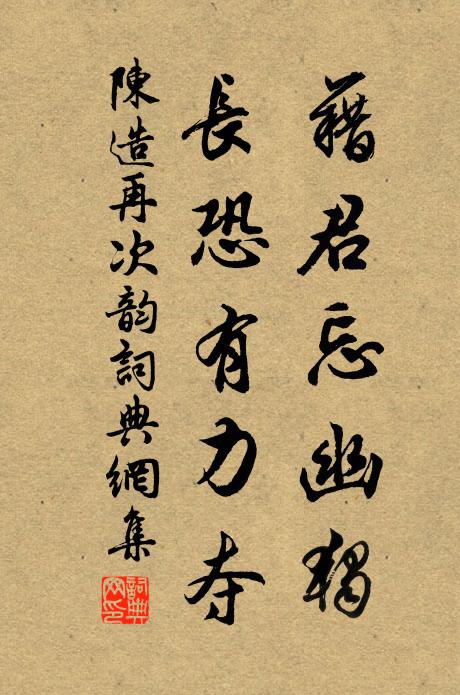 藉君忘幽独
長恐有力夺
陳造再次韵詞典網集
詞典网印